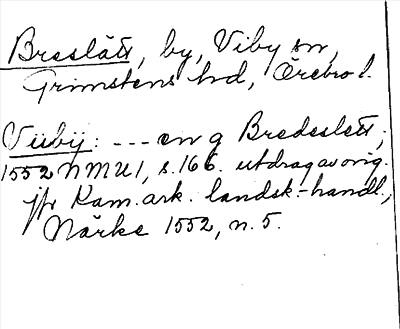 Breslätt, by, Viby sn,
Grimstens hd, Örebro l.
Viiby: --- en g Bredeslett,
1552 NMU1, s. 166. utdrag av orig.
jfr Kam. ark. landsk.-handl.,
Närke 1552, n. 5.